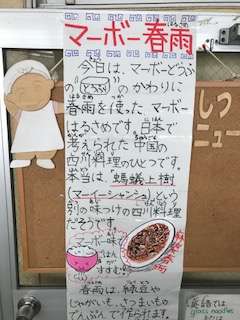 マーボー春雨
今日は、マーボーどうふ
の「とうふ」のかわりに
春雨を使ったマーボー
はるさめです。日本で
考えられた中国の
四川料理のひとつです。
本当は、「螞蟻上樹
(マーイーシャンシュ)」という
別の味つけの四川料理
だそうです。
マーボー味で
ごはんが
すすむ!!
春雨は、緑豆や
じゃがいも、さつまいもの
でんぷんで作られます。
しつ
ニュー
英語では、
glass noodles